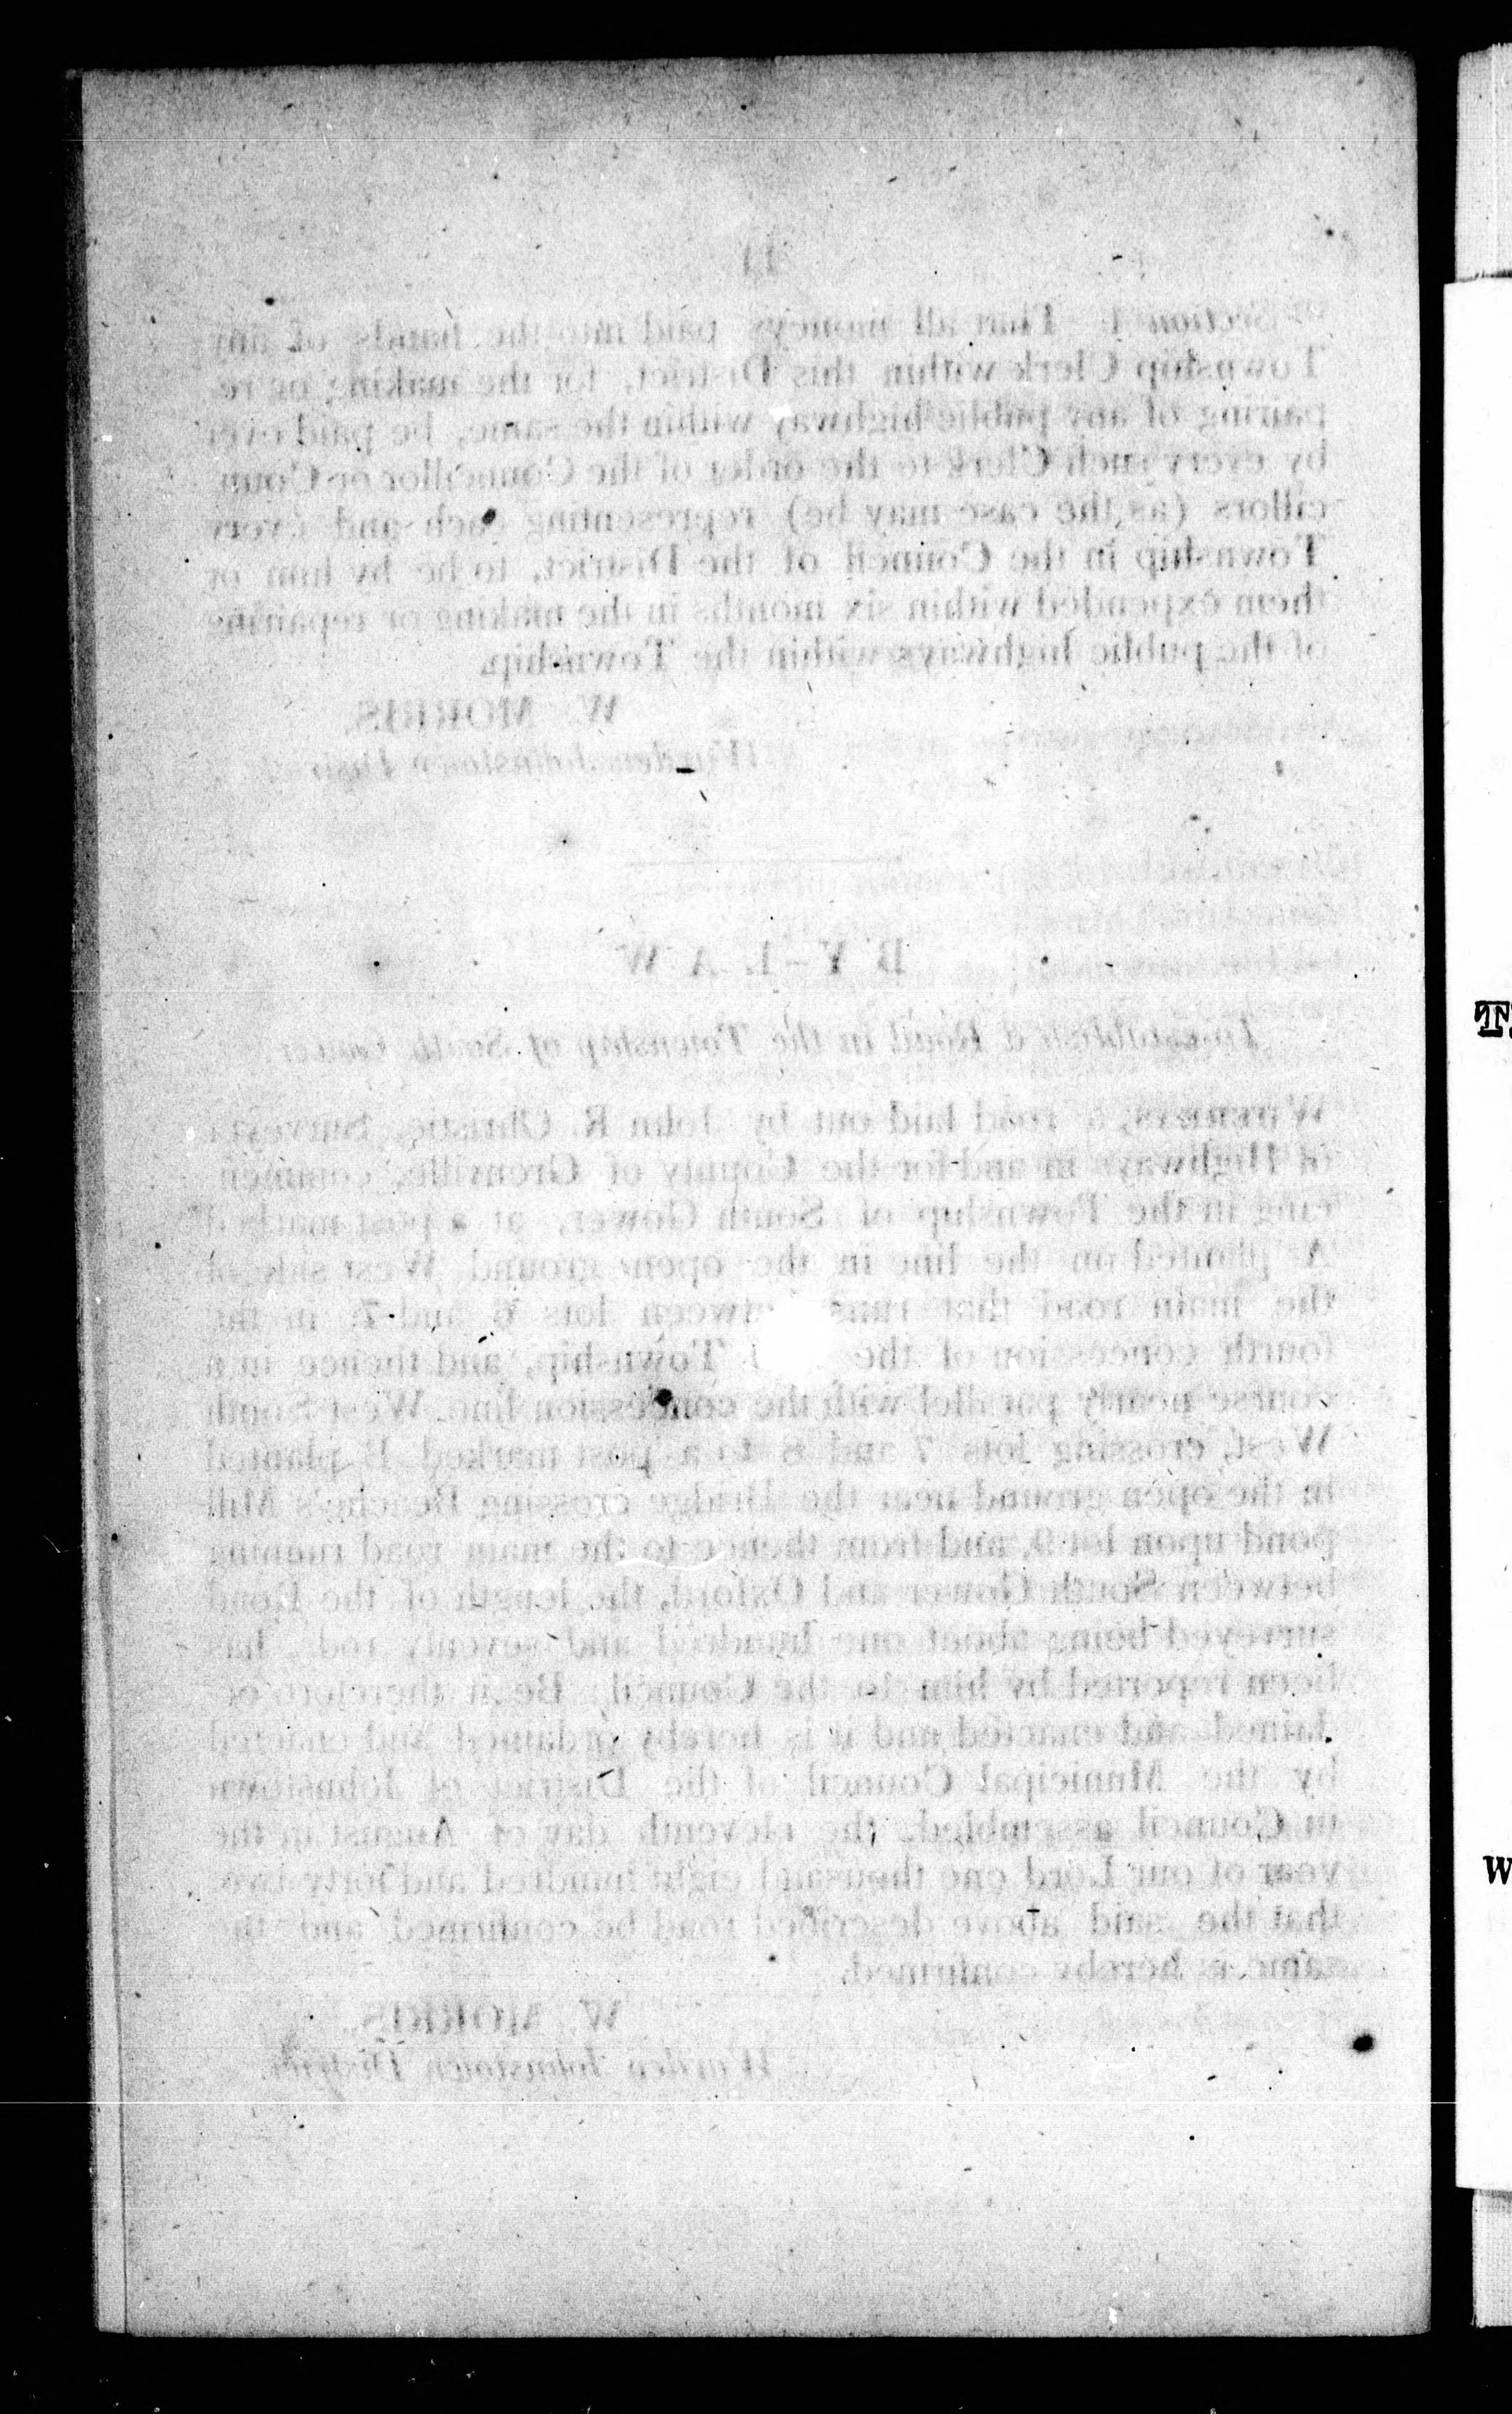 Section 1. That all moneys paid into the hands of any
Township Clerk within this District, for the making or re-
pairing of any public highway within the same, be paid over
by every such Clerk to the order of the Councillor or Coun-
cillors (as the case may be) representing each and every
Township in the Council of the District, to be by him or
them expended within six months in the making or repairing
of the public highways within the Township.
W. MORRIS,
Warden Johnstown Dist
BY-LAW
To establish a Road in the Township of South Gower.
WHEREAS, a road laid out by John R. Christie, Surveyor
of Highways in and for the County of Grenville, commen-
cing in the Township of South Gower, at a post marked
A planted on the line in the open ground West side of
the main road that runs between lots 6 and 7 in the
fourth concession of the Township, and thence in a
course nearly parallel with the concession line, West South
West, crossing lots 7 and 8 to a post marked B planted
in the open ground near the Bridge crossing Mill
pond upon lot 9, and from thence to the main road running
between South Gower and Oxford, the length of the Road
surveyed being about one hundred and seventy rods, has
been reported by him to the Council; Be it therefore or-
dained and enacted and it is hereby ordained and enacted
by the Municipal Council of the District of Johnstown
in Council assembled, the eleventh day of August in the
year of our Lord one thousand eight hundred and forty two,
that the said above described road be confirmed and the
same is hereby confirmed.
W. MORRIS,
Warden Johnstown District.
T
W